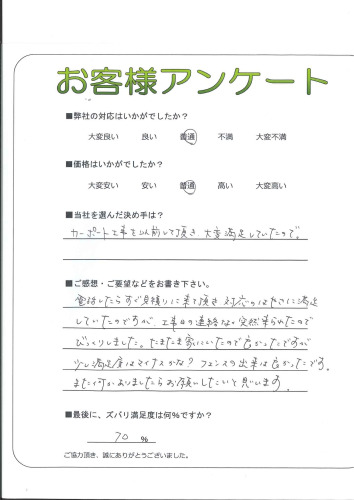 お客様アンケート
■弊社の対応はいかがでしたか？
大変良い 良い 普通 不満 大変不満
■価格はいかがでしたか？
大変安い 安い 普通 高い 大変高い
■当社を選んだ決め手は？
カーポート工事を以前して頂き、大変満足していたので。
■ご感想・ご要望などをお書き下さい。
電話したらすぐ見積りに来て頂き 対応のはやさに満足
していたのですが、工事日の連絡なく突然来られたので
びっくりしました。たまたま家にいたので良かったですが
少し満足度はマイナスかな？フェンスの出来は良かったです。
また何かありましたらお願いしたいと思います。
■最後に、ズバリ満足度は何%ですか？
70 %
ご協力頂き、誠にありがとうございました。